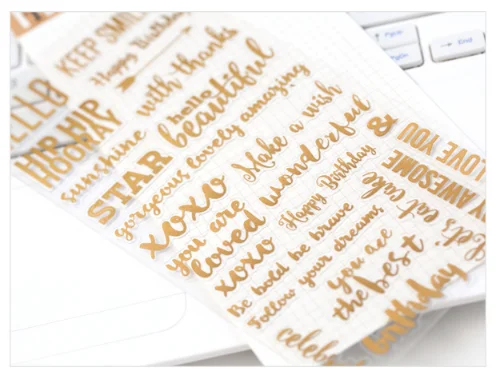 KEEP SMIL
Happy Birthday
with thanks
ELLO
HIP HIP
HOORAY
hello
beautiful
sunshine
STAR
gorgeous lovely amazing
xoxo
Make a wish
you are
loved
wonderful
&
xoxo
Happy Birthday
Be bold be brave
Follow your dreams
you are
the best
I LOVE YOU
AWESOME
let's eat cake
celebr
birthday
End